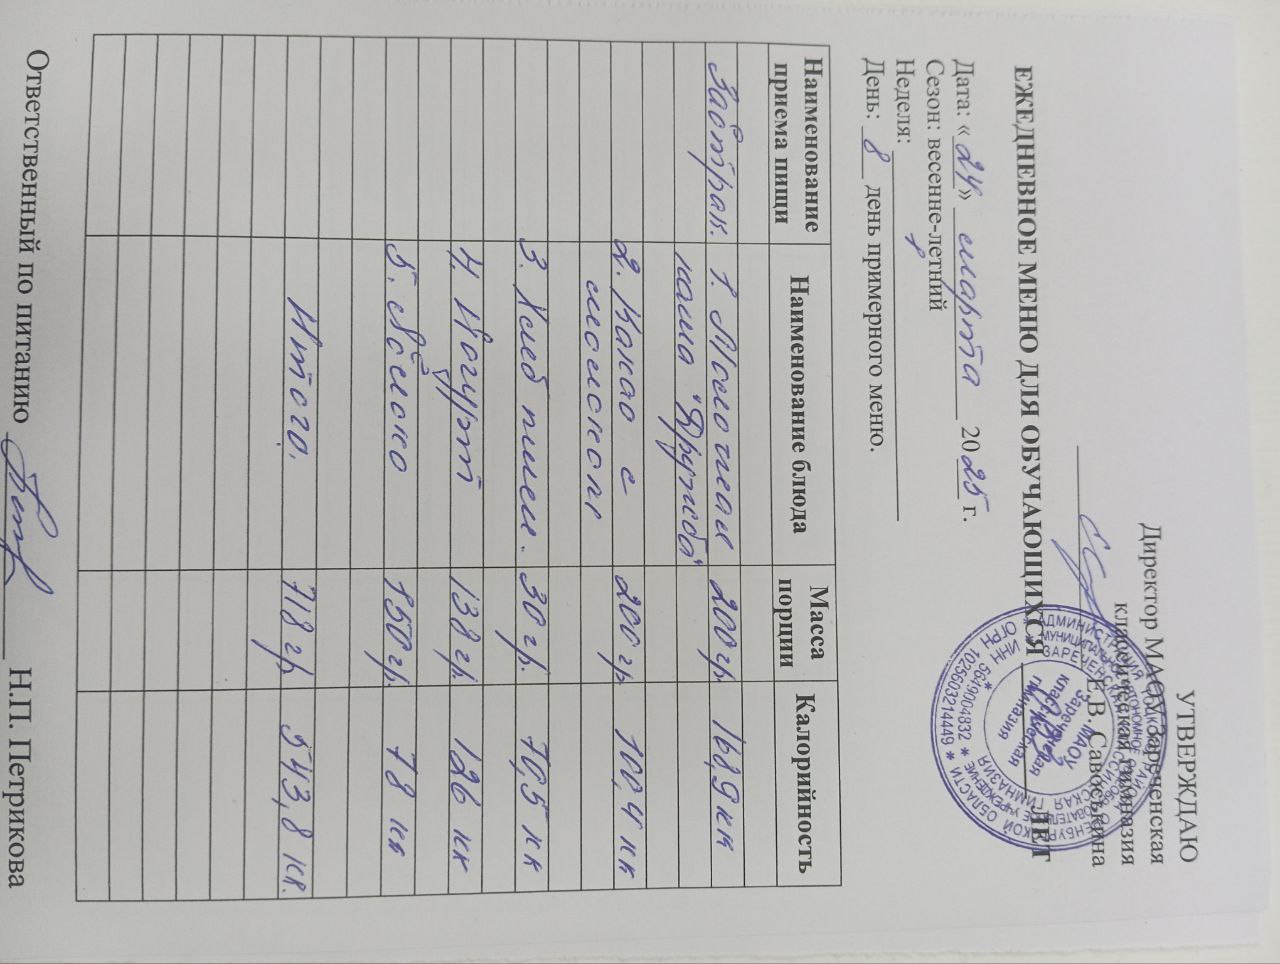 УТВЕРЖДАЮ
Директор МАОУ Зареченская
классическая гимназия
Е.В. Савоськина
ЕЖЕДНЕВНОЕ МЕНЮ ДЛЯ ОБУЧАЮЩИХСЯ ЛЕТ
Дата: «24» марта 2025 г.
Сезон: весенне-летний
Неделя:
День: 8 день примерного меню.
Наименование приема пищи Наименование блюда Масса порции Калорийность
Завтрак. 1. Молочная 200 гр. 168,9 кк
каша "Дружба"
2. Какао с 200 гр. 100,4 кк
молоком
3. Хлеб пшен. 30 гр. 70,5 кк
4. Йогурт 138 гр. 126 кк
5. Яблоко 150 гр. 78 кк
Итого. 718 гр. 543,8 кк.
Ответственный по питанию Н.П. Петрикова
ОГРН 1025603214449
ИНН 5649004832
МАОУ
Зареченская
классическая
гимназия